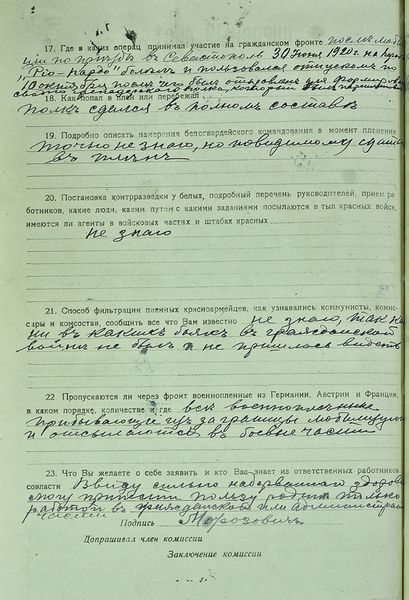 17. Где в каких операц принимал участие на гражданском фронте после мобили
по прибы въ Севастополь 30 Июня 1920 г. на пароход
„Ріо-Пардо“ болѣлъ и пользовался отпускомъ по
октября послѣ чего былъ отправленъ для формирова
полка, который былъ
18. Как попал в плен или перебежал
полкъ сдался въ полномъ составѣ
19. Подробно описать намерения белогвардейского командования в момент пленения
точно не знаю, но повидимому сдаться
въ плѣнъ
20. Постановка контрразведки у белых, подробный перечень руководителей, прием ра-
ботников, какие люди, каким путем с какими заданиями посылаются в тыл красных войск,
имеются ли агенты в войсковых частях и штабах красных
не знаю
21. Способ фильтрации пленных красноармейцев, как узнавались коммунисты, комис-
сары и комсостав, сообщить все что Вам известно не знаю, такъ какъ
ни въ какихъ бояхъ въ гражданской
войнѣ не былъ и не пришлось видѣть
22 Пропускаются ли через фронт военнопленные из Германии, Австрии и Франции,
в каком порядке, количестве и где всѣ военноплѣнные
прибывающіе изъ за границы мобилизуются
и отсылаются въ боевые части
23. Что Вы желаете о себе заявить и кто Вас знает из ответственных работников
совласти Ввиду сильно надорваннаго здоровья
могу принести пользу родинѣ только
работой въ гражданской или администрат
части
Подпись Морозовичъ
Допрашивал член комиссии
Заключение комиссии